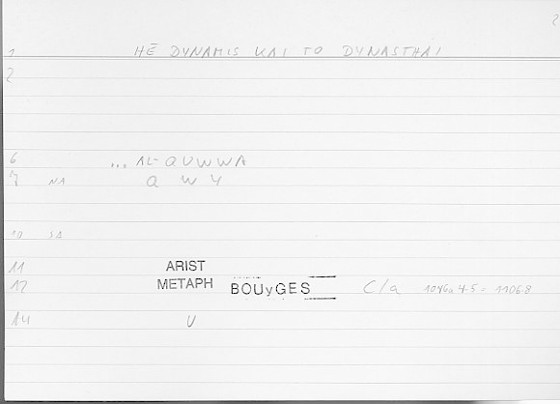 2
1 HĒ DYNAMIS KAI TO DYNASTHAI
2
6 ... AL-QUWWA
7 NA Q W Y
10 SA
11 ARIST
12 METAPH BOUyGES C/a 1046a 4-5 =
14 U